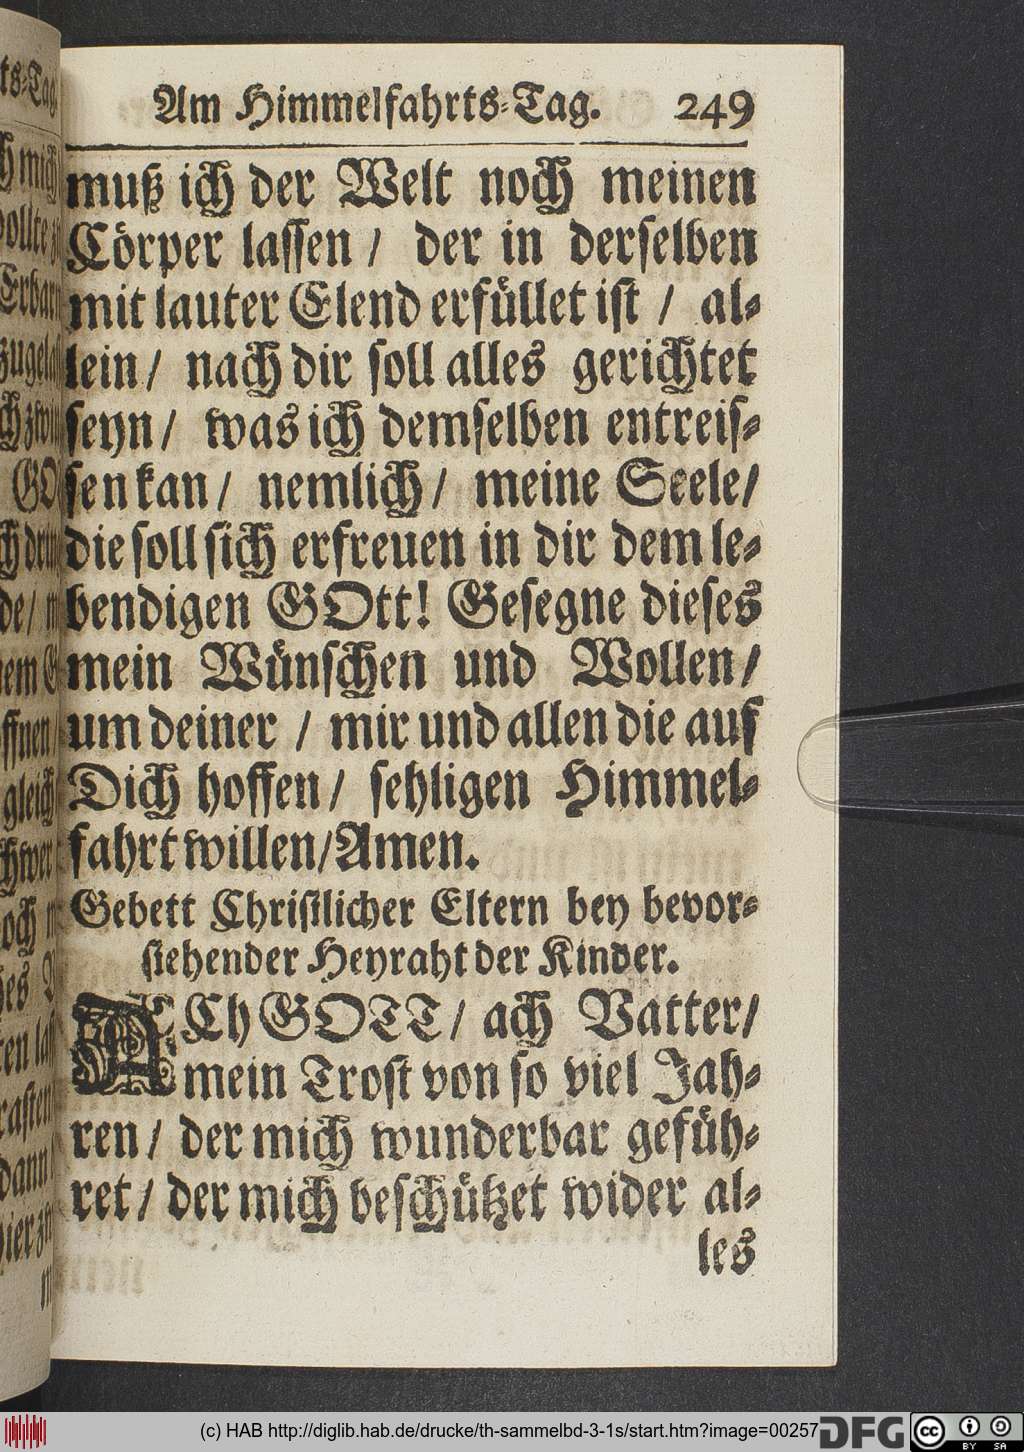 Am Himmelfahrts-Tag. 249
muß ich der Welt noch meinen
Cörper lassen / der in derselben
mit lauter Elend erfüllet ist / al-
lein / nach dir soll alles gerichtet
seyn / was ich demselben entreis-
sen kan / nemlich / meine Seele /
die soll sich erfreuen in dir dem le-
bendigen GOtt! Gesegne dieses
mein Wünschen und Wollen /
um deiner / mir und allen die auf
Dich hoffen / sehligen Himmel-
fahrt willen / Amen.
Gebett Christlicher Eltern bey bevor-
stehender Heyraht der Kinder.
ACh GOTT / ach Vatter /
mein Trost von so viel Jah-
ren / der mich wunderbar gefüh-
ret / der mich beschützet wider al-
les
(c) HAB http://diglib.hab.de/drucke/th-sammelbd-3-1s/start.htm?image=00257
DFG cc BY SA